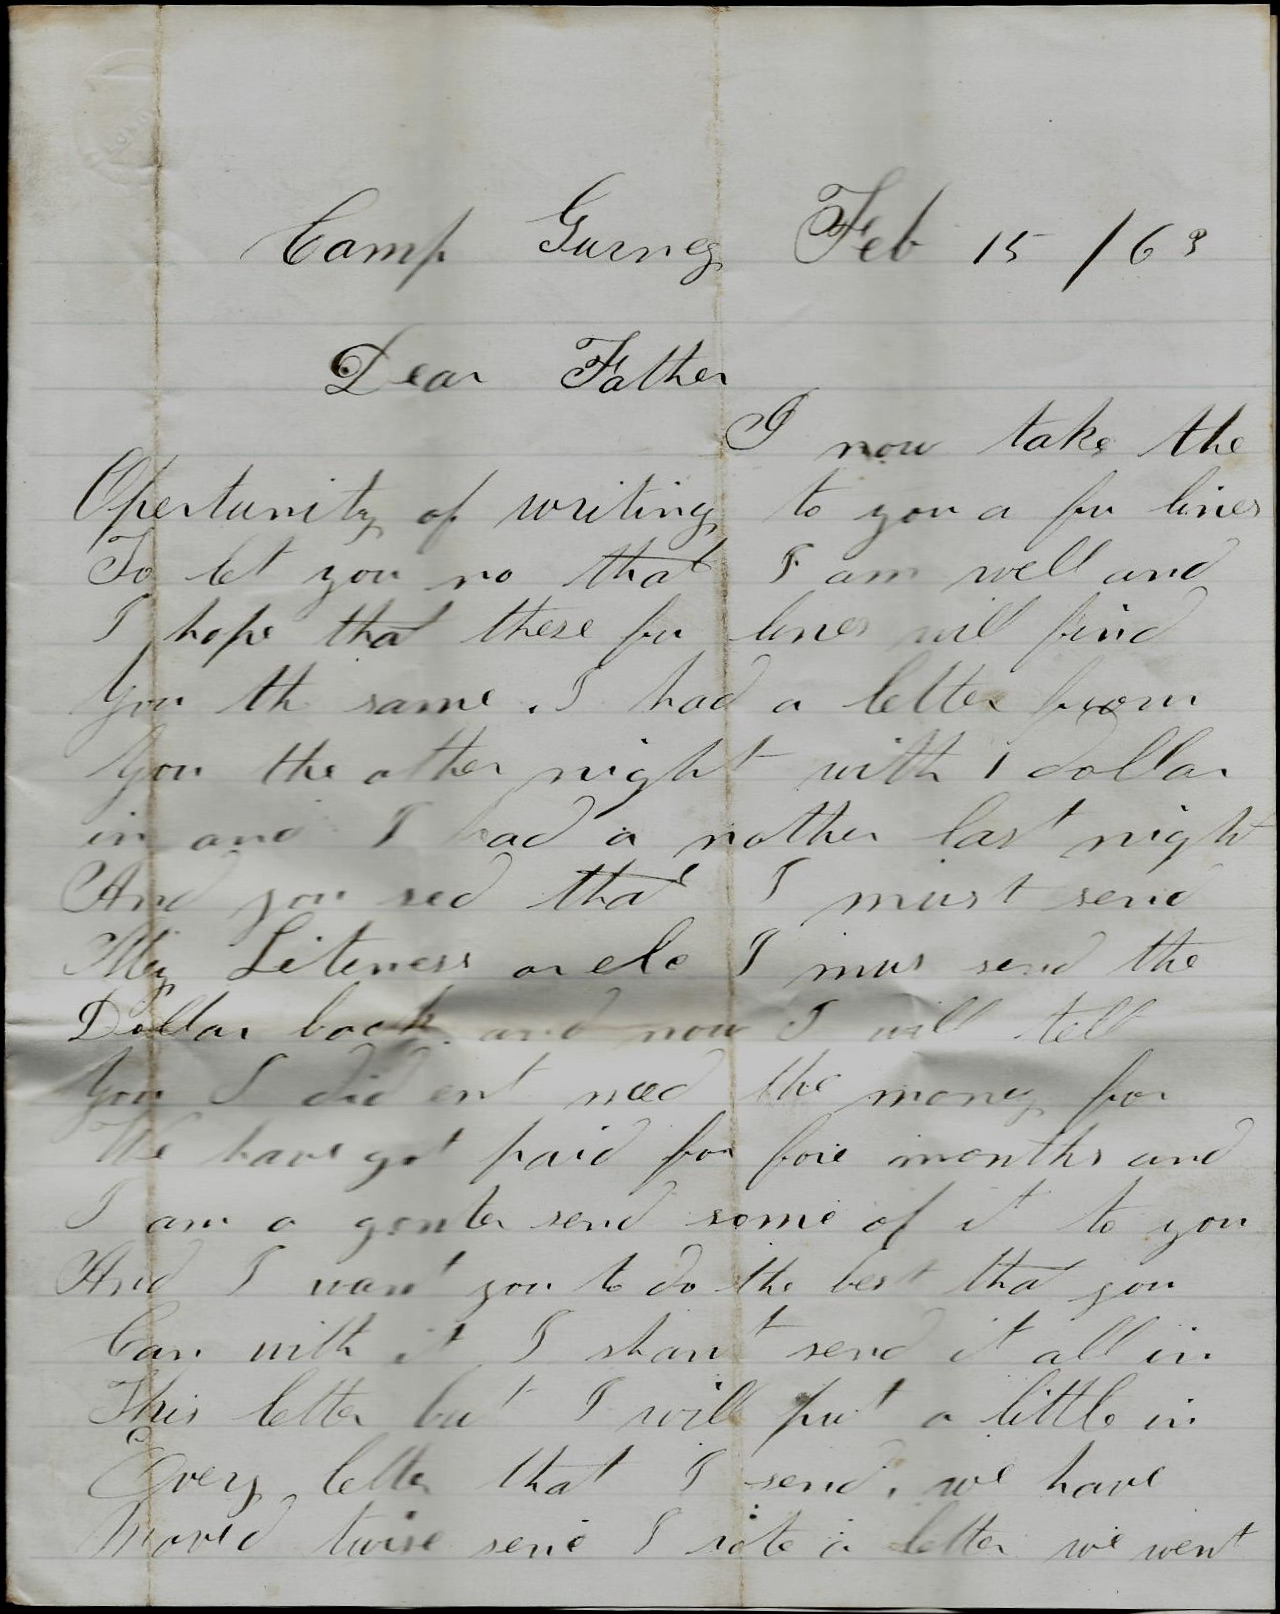 Camp Gurney Feb 15 /63
Dear Father
I now take the
Opertunity of writing to you a fu lines
To let you no that I am well and
I hope that these fu lines will find
You th same . I had a letter from
You the other night with 1 dollar
in and I had a nother last night
And you sed that I must send
My Liteness or els I mus send the
Dollar back and now I will tell
You I did ent need the money for
We have got paid for fore months and
I am a gonter send some of it to you
And I want you to do the best that you
Can with it I shant send it all in
This letter but I will put a little in
Every letter that I send . we have
Moved twise sene I rote a letter we went